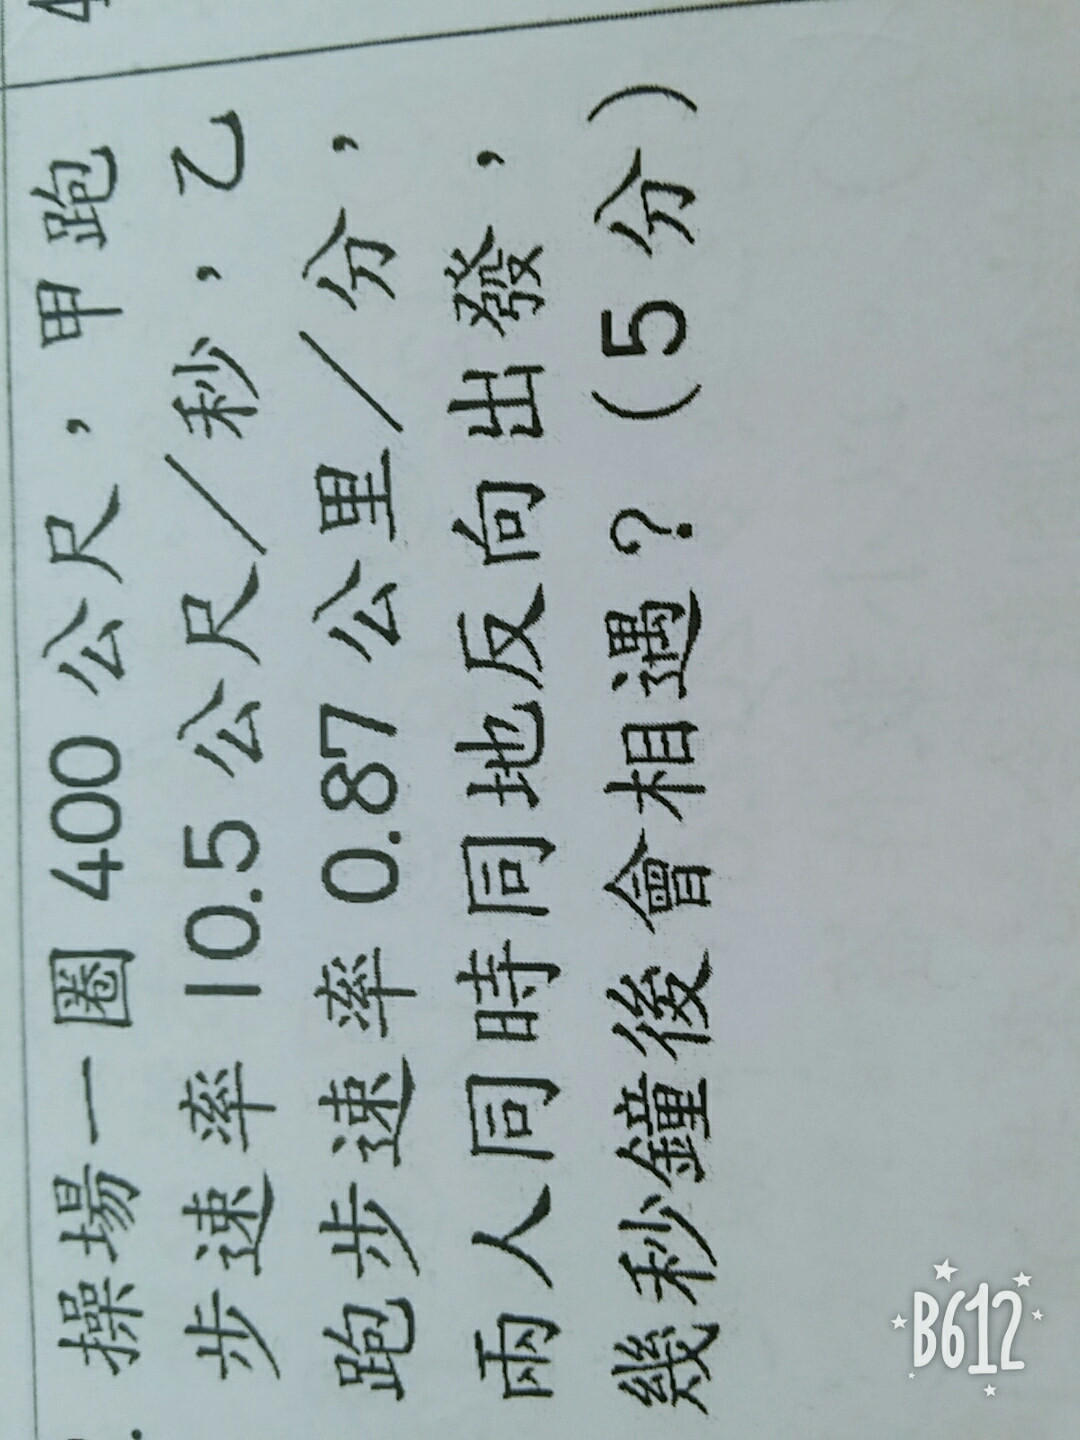 操場一圈 400 公尺，甲跑
步速率 10.5 公尺／秒，乙
跑步速率 0.87 公里／分，
兩人同時同地反向出發，
幾秒鐘後會相遇？（5 分）
B612